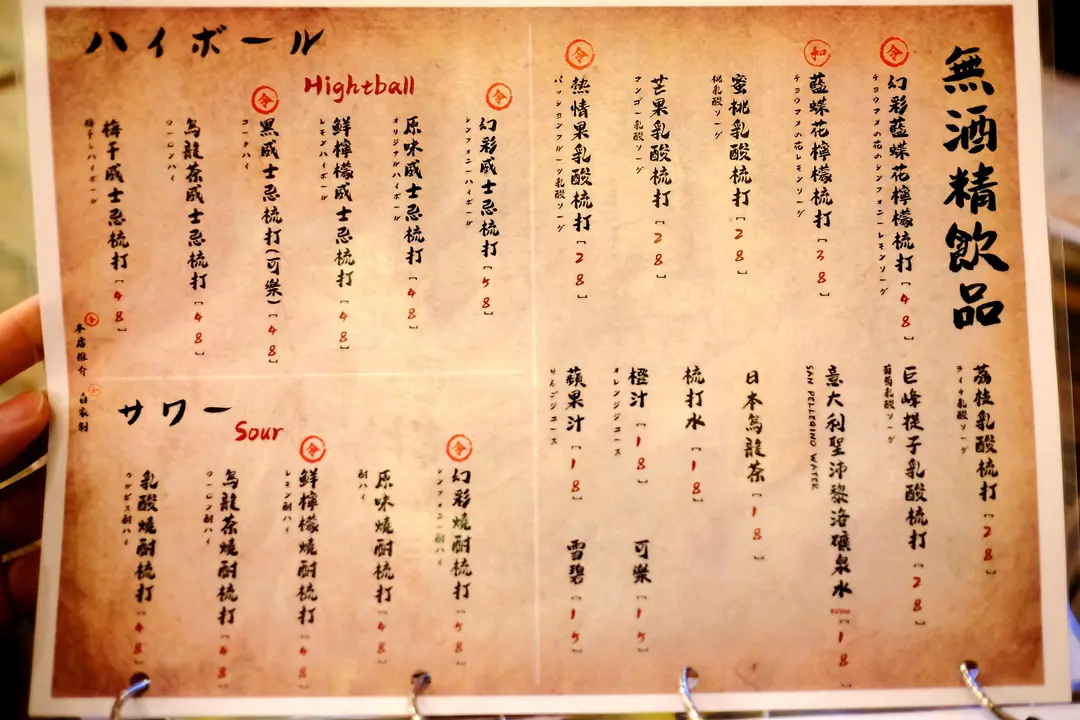 無酒精飲品
令
幻彩藍蝶花檸檬梳打 [48]
チョウマメの花のシンフォニーレモンソーダ
和
藍蝶花檸檬梳打 [38]
チョウマメの花レモンソーダ
蜜桃乳酸梳打 [28]
桃乳酸ソーダ
芒果乳酸梳打 [28]
マンゴー乳酸ソーダ
令
熱情果乳酸梳打 [28]
パッションフルーツ乳酸ソーダ
荔枝乳酸梳打 [28]
ライチ乳酸ソーダ
巨峰提子乳酸梳打 [28]
葡萄乳酸ソーダ
意大利聖沛黎洛礦泉水 [18]
SAN PELLEGRINO WATER
日本烏龍茶 [18]
梳打水 [18]
橙汁 [18]
オレンジジュース
蘋果汁 [18]
りんごジュース
可樂 [15]
雪碧 [15]
ハイボール
Hightball
令
幻彩威士忌梳打 [58]
シンフォニーハイボール
原味威士忌梳打 [48]
オリジナルハイボール
鮮檸檬威士忌梳打 [48]
レモンハイボール
令
黑威士忌梳打(可樂) [48]
コークハイ
烏龍茶威士忌梳打 [48]
ウーロンハイ
梅干威士忌梳打 [48]
梅干しハイボール
サワー
Sour
令
幻彩燒酎梳打 [58]
シンフォニー酎ハイ
原味燒酎梳打 [48]
酎ハイ
令
鮮檸檬燒酎梳打 [48]
レモン酎ハイ
烏龍茶燒酎梳打 [48]
ウーロン酎ハイ
乳酸燒酎梳打 [48]
カルピス酎ハイ
令 本店推介
和 自家製